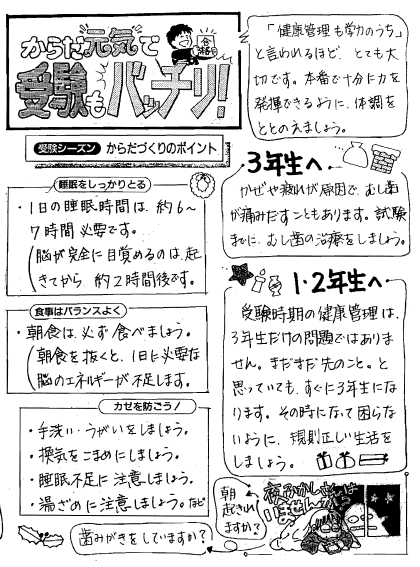 からだ元気で
合格
受験もバッチリ!
受験シーズン からだづくりのポイント
睡眠をしっかりとる
・1日の睡眠時間は、約6〜
7時間必要です。
(脳が完全に目覚めるのは、起
きてから、約2時間後です。)
食事はバランスよく
・朝食は、必ず食べましょう。
(朝食を抜くと、1日に必要な
脳のエネルギーが不足します。)
カゼを防ごう!
・手洗い・うがいをしましょう。
・換気をこまめにしましょう。
・睡眠不足に注意しましょう。
・湯ざめに注意しましょう。など
歯みがきをしていますか?
「健康管理も学力のうち」
と言われるほど、とても大
切です。本番で十分に力を
発揮できるように、体調を
ととのえましょう。
3年生へ
かぜや疲れが原因で、むし歯
が痛みだすこともあります。試験
までに、むし歯の治療をしましょう。
1・2年生へ
受験時期の健康管理は、
3年生だけの問題ではありま
せん。まだまだ先のこと。と
思っていても、すぐに3年生にな
ります。その時になって困らな
いように、規則正しい生活を
しましょう。
朝
起きれ
ますか?
夜ふかしをしては
いませんか